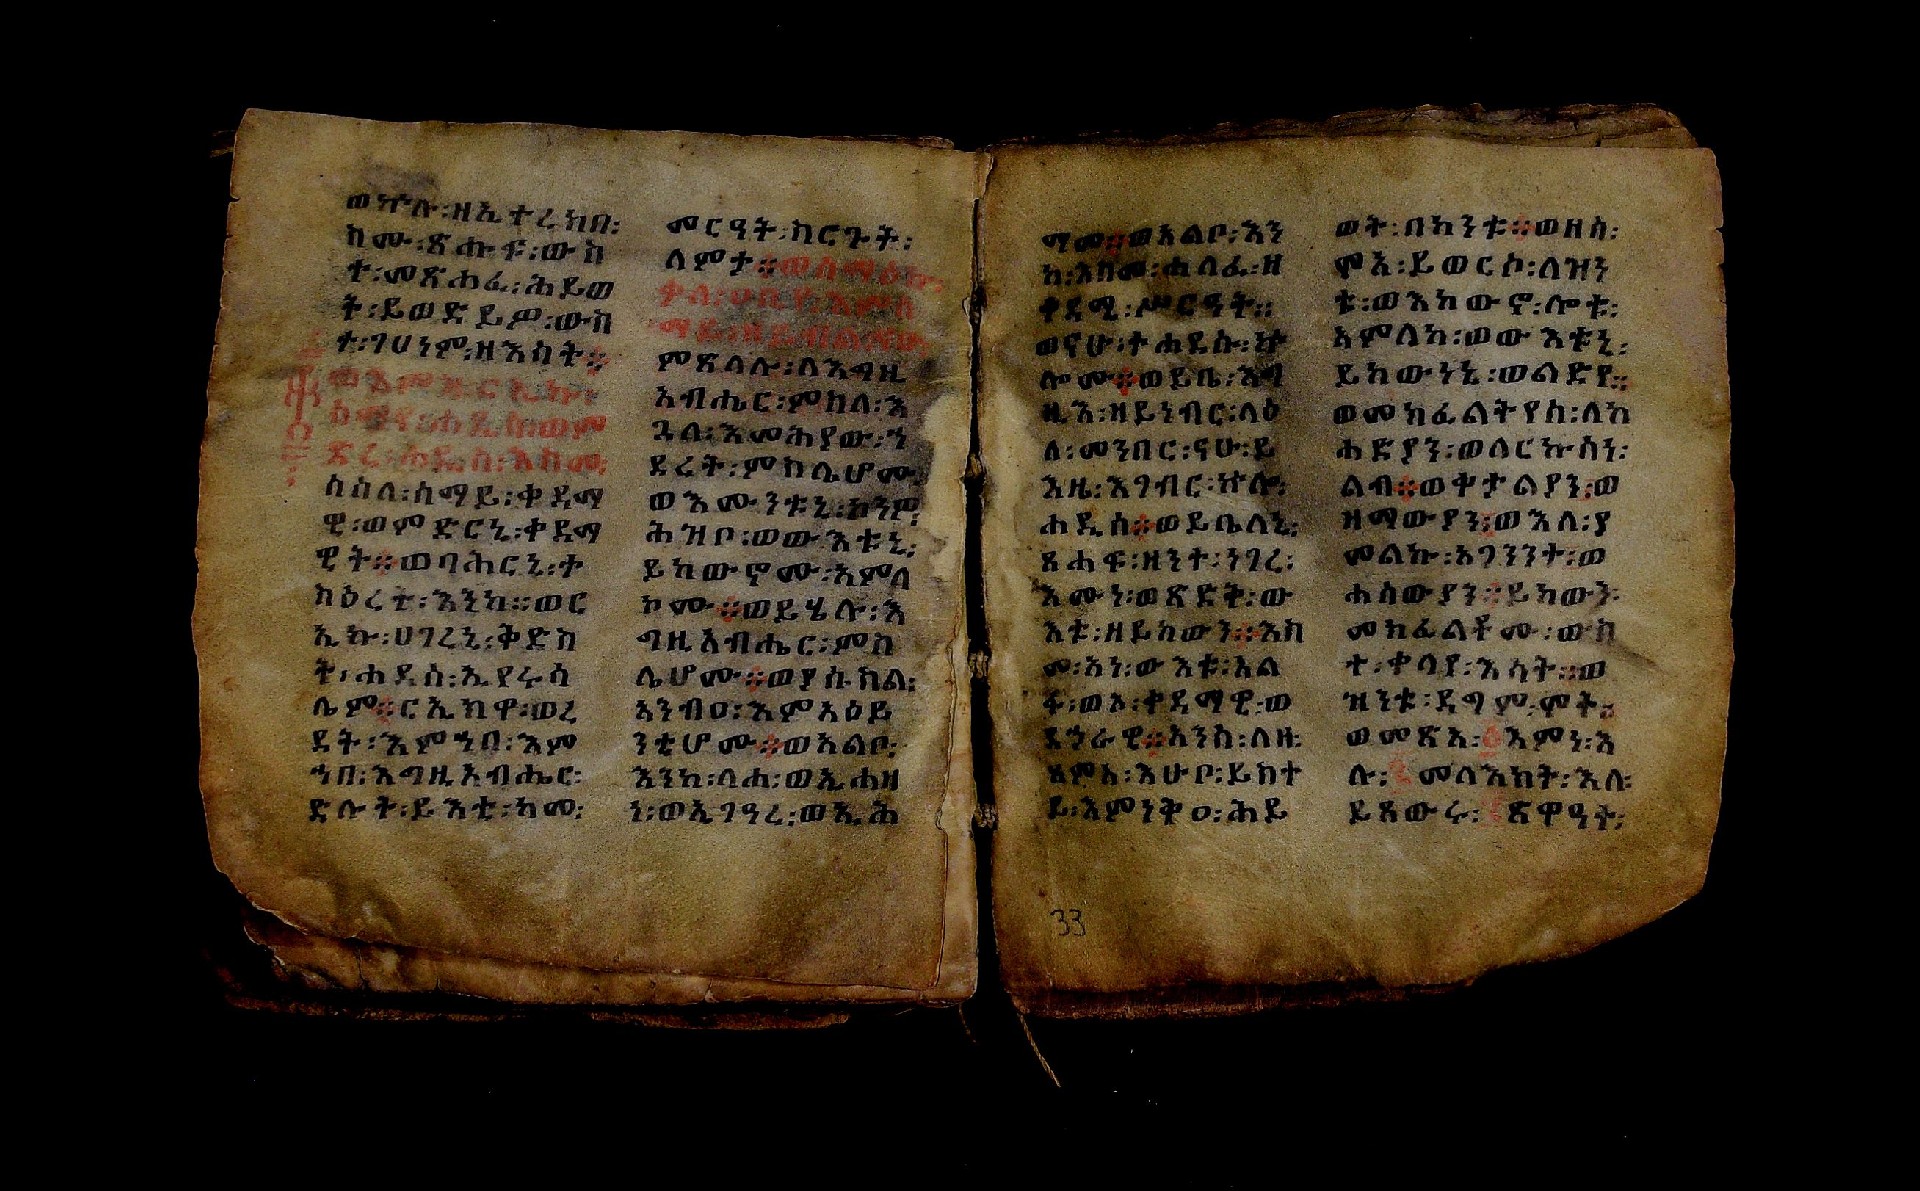 ወኵሉ፡ዘኢተረክበ፡
ከሙ፡ጽሑፍ፡ውስ
ተ፡መጽሐፈ፡ሕይወ
ት፡ይወድይዎ፡ውስ
ተ፡ገሀነም፡ዘእሳት።
ሰማየ፡ሐዲሰ፡ወም
ድረ፡ሐዲስ፡እስመ፡
ሰስለ፡ሰማይ፡ቀዳማ
ዊ፡ወምድርኒ፡ቀዳማ
ዊት።ወባሕርኒ፡ተ
ክዕረት፡እንከ።ወር
ኢኩ፡ሀገረኒ፡ቅድስ
ት፡ሐዳስ፡ኢየሩሳ
ሌም።ርኢክዋ፡ወረ
ደት፡እምኀበ፡እም
ኀበ፡እግዚአብሔር፡
ድሉት፡ይእቲ፡ከመ፡
መርዓት፡ከሮጉት፡
ለምታ።ወሰማዕኩ
ቃለ፡ዐቢየ፡እምሰ
ማይ፡ዘይብል፡ናሁ
ምጽላሉ፡ለእግዚ
አብሔር፡ምስለ፡እ
ጓለ፡እመሕያው፡ኀ
ደረት፡ምስሌሆሙ፡
ወእሙንቱኒ፡ከንዎ፡
ሕዝቦ፡ወውእቱኒ፡
ይከውኖሙ፡አምላ
ኮሙ።ወይሄሉ፡እ
ግዚአብሔር፡ምስ
ሌሆሙ።ወያሴስል፡
አንብዐ፡እምአዕይ
ንቲሆሙ።ወአልቦ፡
እንከ፡ላሐ፡ወኢሐዘ
ነ፡ወኢገዓረ፡ወኢሕ
ማመ።ወአልቦ፡እን
ከ፡እስመ፡ሐለፈ፡ዘ
ቀዳሚ፡ሥርዓት።
ወናሁ፡ተሐደሰ፡ኵ
ሎሙ።ወይቤ፡እግ
ዚእ፡ዘይነብር፡ላዕ
ለ፡መንበር፡ናሁ፡ይ
እዜ፡እገብር፡ኵሎ፡
ሐዲሰ።ወይቤለኒ፡
ጸሐፍ፡ዘንተ፡ነገረ፡
እሙነ፡ወጽድቅ፡ው
እቱ፡ዘይከውን።እስ
መ፡አነ፡ውእቱ፡አል
ፋ፡ወኦ፡ቀዳማዊ፡ወ
ደኃራዊ።አንሰ፡ለዘ፡
ጸምአ፡እሁቦ፡ይስተ
ይ፡እምነቅዐ፡ሕይ
ወት፡በከንቱ።ወዘሰ፡
ሞአ፡ይወርስ፡ለዝን
ቱ፡ወእከውኖ፡ሎቱ፡
አምላከ፡ወውእቱኒ፡
ይከውነኒ፡ወልድየ።
ወመክፈልትየሰ፡ለከ
ሐድያን፡ወለርኩሳን፡
ልብ።ወቀታልያን፡ወ
ዘማውያን፡ወእለ፡ያ
መልኩ፡አጋንንተ፡ወ
ሐሰውያን።ይከውን፡
መክፈልቶሙ፡ውስ
ተ፡ቀላየ፡እሳት።ወ
ዝንቱ፡ዳግም፡ሞት።
ወመጽአ፡፩እምነ፡እ
ሉ፡፯መላእክት፡እለ፡
ይጸውሩ፡፯ጽዋዓት፡
33